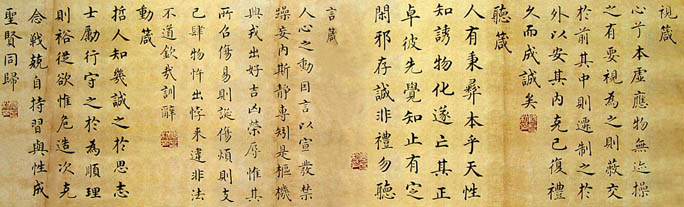 視箴
心兮本虛應物無迹操
之有要視為之則蔽交
於前其中則遷制之於
外以安其內克己復禮
久而成誠矣
聽箴
人有秉彝本乎天性
知誘物化遂亡其正
卓彼先覺知止有定
閑邪存誠非禮勿聽
言箴
人心之動因言以宣發禁
躁妄內斯靜專矧是樞機
興戎出好吉凶榮辱惟其
所召傷易則誕傷煩則支
己肆物忤出悖來違非法
不道欽哉訓辭
動箴
哲人知幾誠之於思志
士勵行守之於為順理
則裕從欲惟危造次克
念戰兢自持習與性成
聖賢同歸